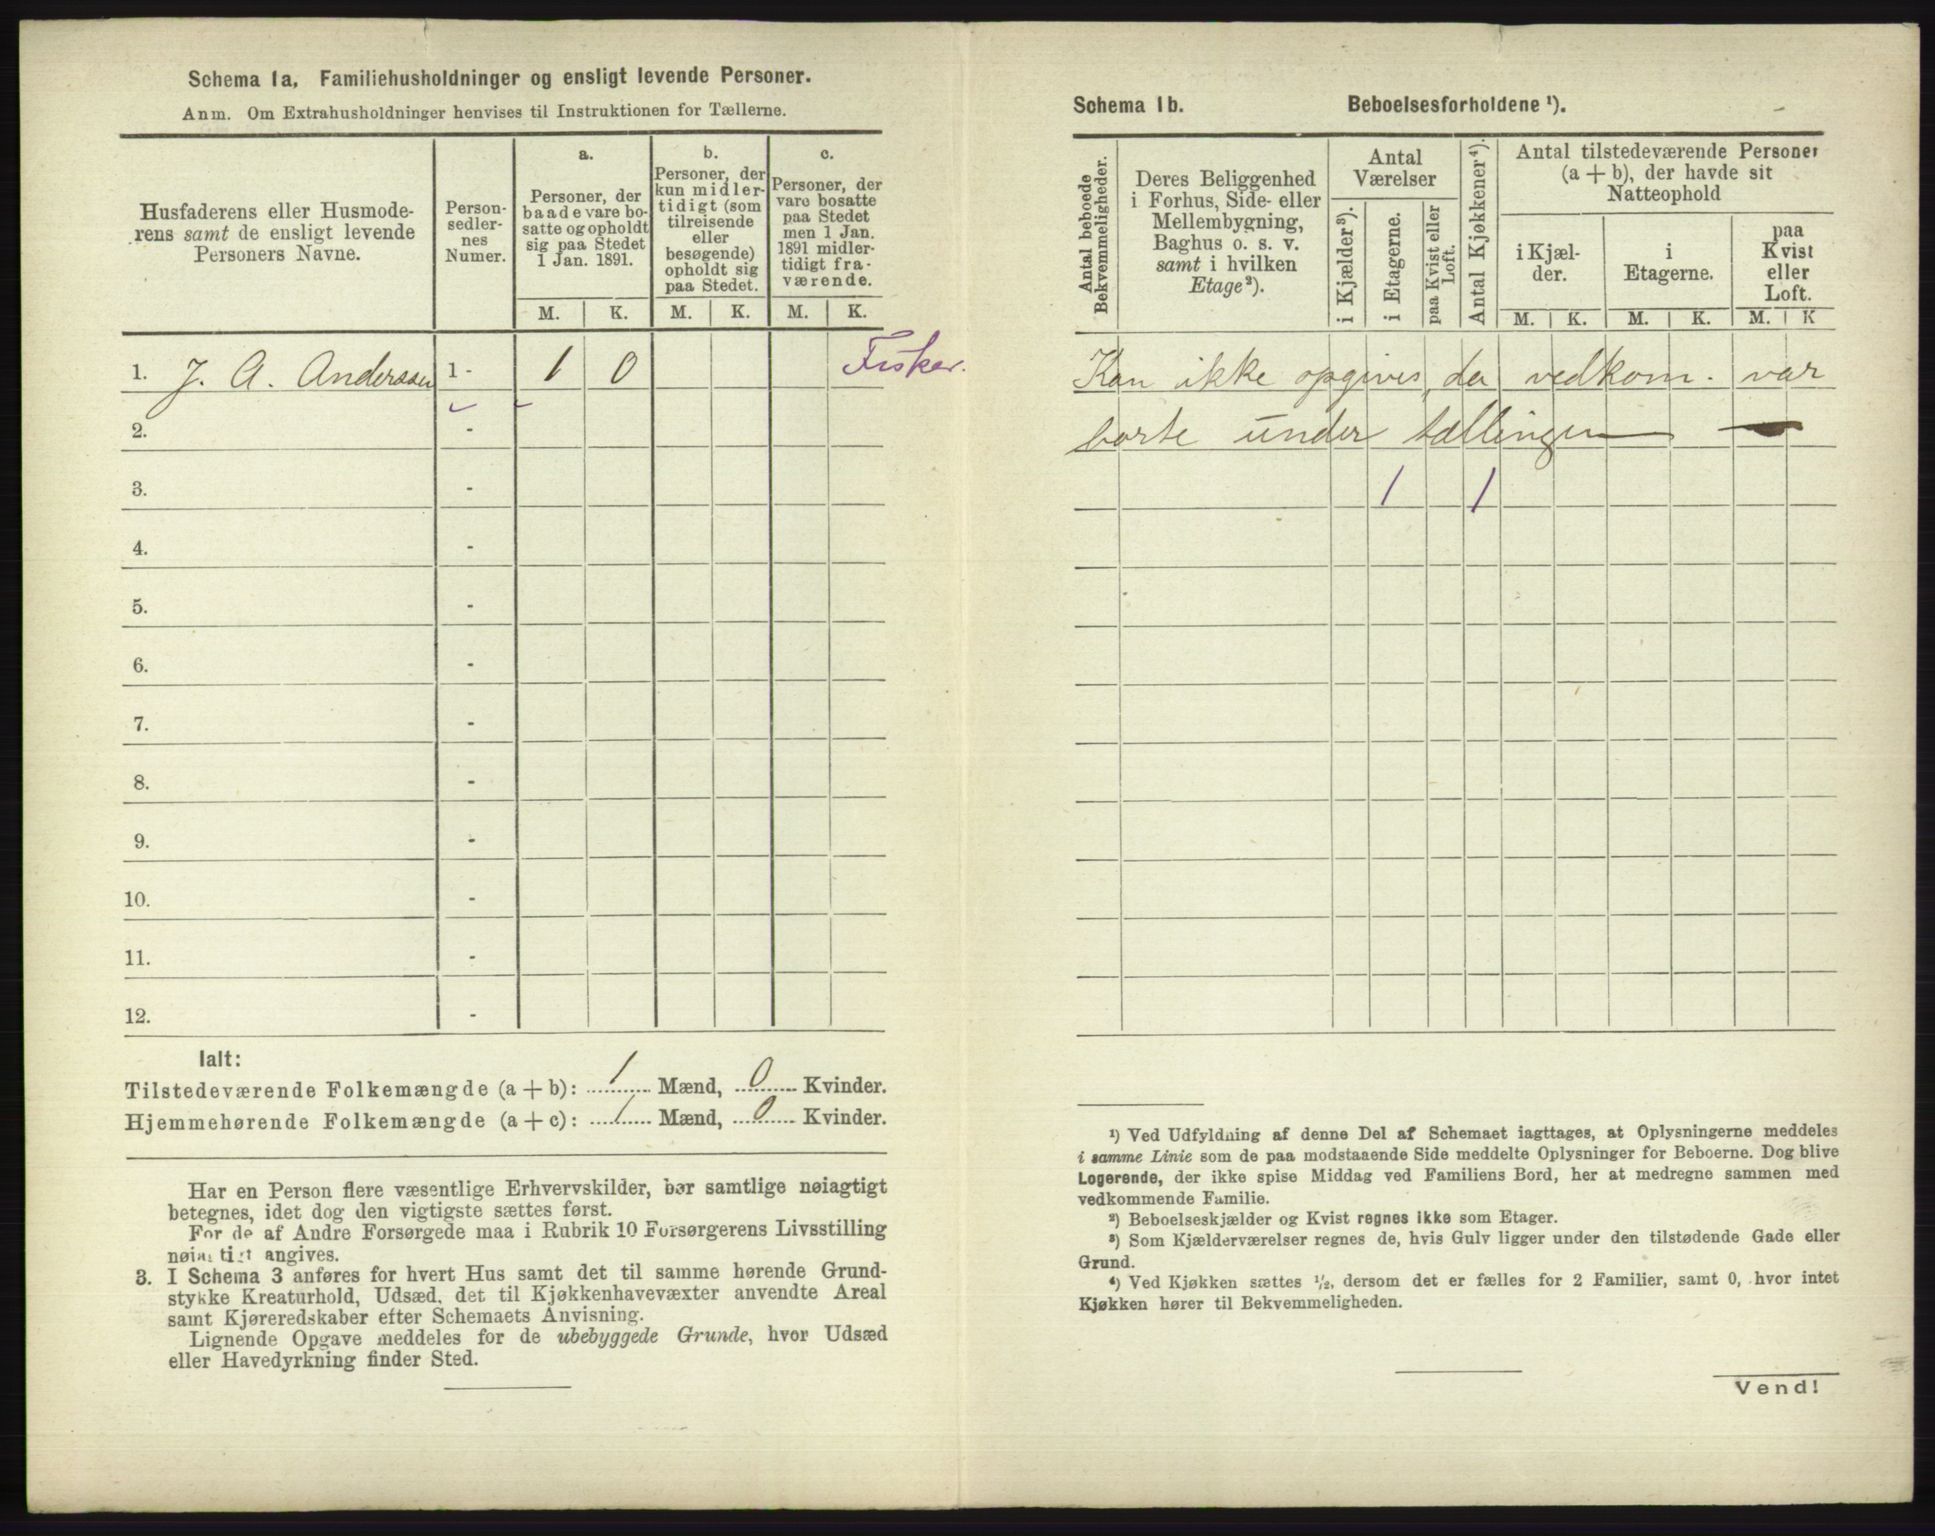 Schema 1a, Familiehusholdninger og ensligt levende Personer.
Anm. Om Extrahusholdninger henvises til Instruktionen for Tællerne.
Husfaderens eller Husmode-
rens samt de ensligt levende
Personers Navne.
Person-
sedler-
nes
Numer.
a.
Personer, der
baade vare bo-
satte og opholdt
sig paa Stedet
1 Jan. 1891.
b.
Personer, der
kun midler-
tidigt (som
tilreisende
eller
besøgende)
opholdt sig
paa Stedet.
c.
Personer, der
vare bosatte
paa Stedet
men 1 Jan.
1891 midler-
tidigt fra-
værende.
M. K. M. K. M. K.
1. J. A. Anderssen 1 - 1 0 Fisker.
2. -
3. -
4. -
5. -
6. -
7. -
8. -
9. -
10. -
11. -
12. -
Ialt:
Tilstedeværende Folkemængde (a + b): 1 Mænd, 0 Kvinder.
Hjemmehørende Folkemængde (a + c): 1 Mænd, 0 Kvinder.
Har en Person flere væsentlige Erhvervskilder, bør samtlige nøiagtigt
betegnes, idet dog den vigtigste sættes først.
For de af Andre Forsørgede maa i Rubrik 10 Forsørgerens Livsstilling
nøiagtigt angives.
3. I Schema 3 anføres for hvert Hus samt det til samme hørende Grund-
stykke Kreaturhold, Udsæd, det til Kjøkkenhavevæxter anvendte Areal
samt Kjøreredskaber efter Schemaets Anvisning.
Lignende Opgave meddeles for de ubebyggede Grunde, hvor Udsæd
eller Havedyrkning finder Sted.
Schema 1b. Beboelsesforholdene ¹).
Antal beboede
Bekvemmeligheder.
Deres Beliggenhed
i Forhus, Side- eller
Mellembygning,
Baghus o. s. v.
samt i hvilken
Etage²).
Antal
Værelser
i Kjælder³).
i Etagerne.
paa Kvist eller
Loft.
Antal Kjøkkener⁴).
Antal tilstedeværende Personer
(a + b), der havde sit
Natteophold
i Kjæl-
der.
i
Etagerne.
paa
Kvist
eller
Loft.
M. K. M. K. M. K
Kan ikke opgives, da vedkom. var
borte under tællingen
1 1
¹) Ved Udfyldning af denne Del af Schemaet iagttages, at Oplysningerne meddeles
i samme Linie som de paa modstaaende Side meddelte Oplysninger for Beboerne. Dog blive
Logerende, der ikke spise Middag ved Familiens Bord, her at medregne sammen med
vedkommende Familie.
²) Beboelseskjælder og Kvist regnes ikke som Etager.
³) Som Kjælderværelser regnes de, hvis Gulv ligger under den tilstødende Gade eller
Grund.
⁴) Ved Kjøkken sættes ½, dersom det er fælles for 2 Familier, samt 0, hvor intet
Kjøkken hører til Bekvemmeligheden.
Vend!